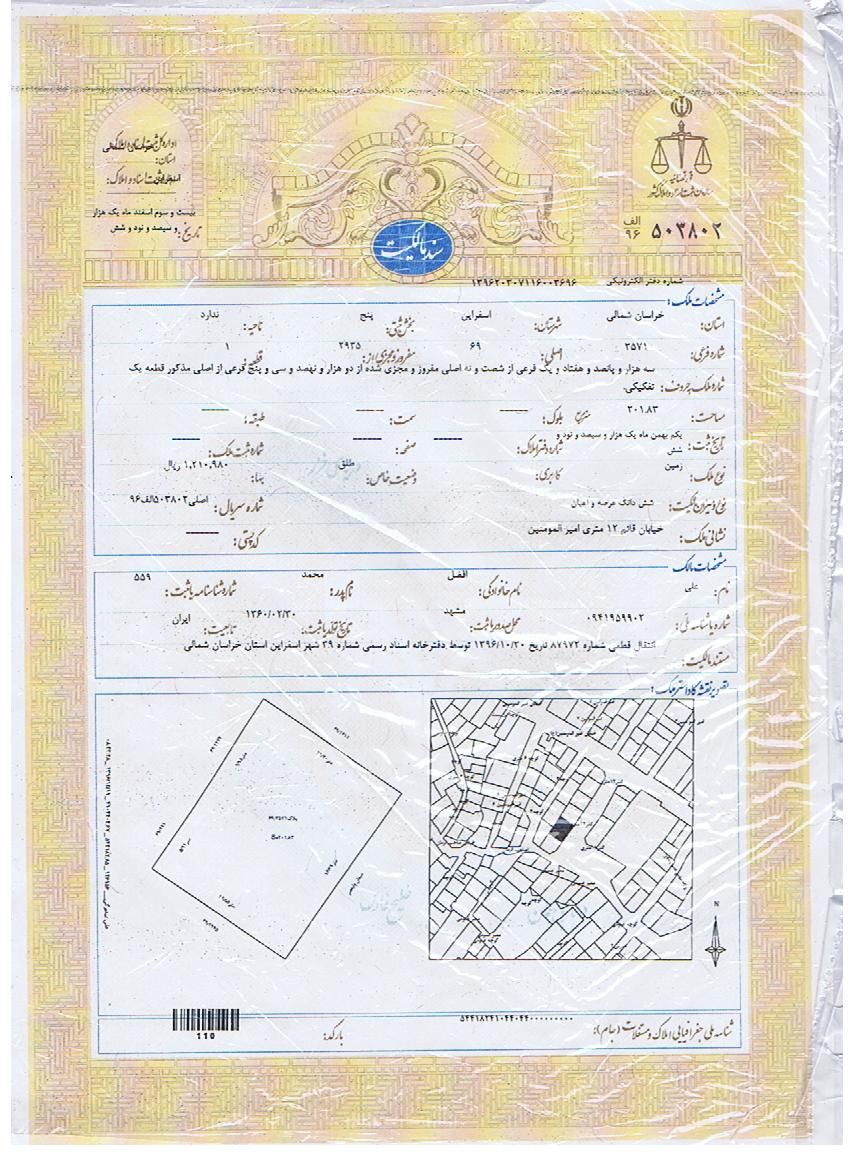 قوه قضائیه
سازمان ثبت اسناد و املاک کشور
الف ۹۶ ۵۰۳۸۰۲
اداره کل ثبت اسناد و املاک
استان: خراسان شمالی
ثبت اسناد و املاک: اسفراین
تاریخ: بیست و سوم اسفند ماه یک هزار و سیصد و نود و شش
سند مالکیت
شماره دفتر الکترونیکی ۱۳۹۶۲۰۳۰۷۱۱۶۰۰۳۶۹۶
مشخصات ملک:
استان: خراسان شمالی شهرستان: اسفراین بخش ثبتی: پنج ناحیه: ندارد
شماره فرعی: ۳۵۷۱ اصلی: ۶۹ مفروز و مجزی از: ۲۹۳۵ قطعه: ۱
شماره ملک بحروف: سه هزار و پانصد و هفتاد و یک فرعی از شصت و نه اصلی مفروز و مجزی شده از دو هزار و نهصد و سی و پنج فرعی از اصلی مذکور قطعه یک
تفکیکی.
مساحت: ۲۰۱.۸۳ مترمربع بلوک: ------ سمت: ------ طبقه: ------
تاریخ ثبت: یکم بهمن ماه یک هزار و سیصد و نود و شش شماره دفتر املاک: ------ صفحه: ------ شماره ثبت ملک: ------
نوع ملک: زمین کاربری: وضعیت خاص: طلق بها: ۱,۲۱۰,۹۸۰ ریال
نوع و میزان مالکیت: شش دانگ عرصه و اعیان شماره سریال: اصلی ۵۰۳۸۰۲الف۹۶
نشانی ملک: خیابان قائم ۱۲ متری امیر المومنین کد پستی: ------
مشخصات مالک
نام: علی نام خانوادگی: افضل نام پدر: محمد شماره شناسنامه یا ثبت: ۵۵۹
شماره یا شناسه ملی: ۰۹۴۱۹۵۹۹۰۲ محل صدور یا ثبت: مشهد تاریخ تولد یا ثبت: ۱۳۶۰/۰۲/۳۰ تابعیت: ایران
مستند مالکیت: انتقال قطعی شماره ۸۷۹۷۲ تاریخ ۱۳۹۶/۱۰/۳۰ توسط دفترخانه اسناد رسمی شماره ۳۹ شهر اسفراین استان خراسان شمالی
تصویر نقشه کاداستر ملک:
N
خلیج فارس
شناسه ملی جغرافیایی املاک و مستغلات (جام):
بارکد: 110